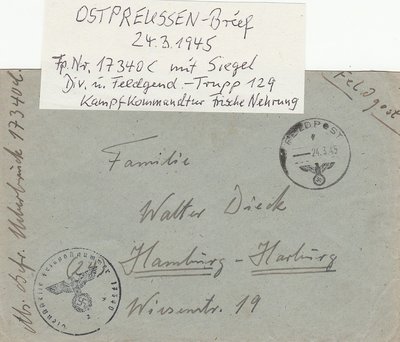 OSTPREUSSEN-Brief
24.3.1945
Fp.Nr. 17340C mit Siegel
Div. u. Feldgend.-Trupp 129
Kampfkommandtur frische Nehrung
Feldpost
FELDPOST
24.3.45
Familie
Walter Dieck
Hamburg-Harburg
Wiesenstr. 19
Abs. Gefr. 17340C
Dienststelle Feldpostnummer 17340